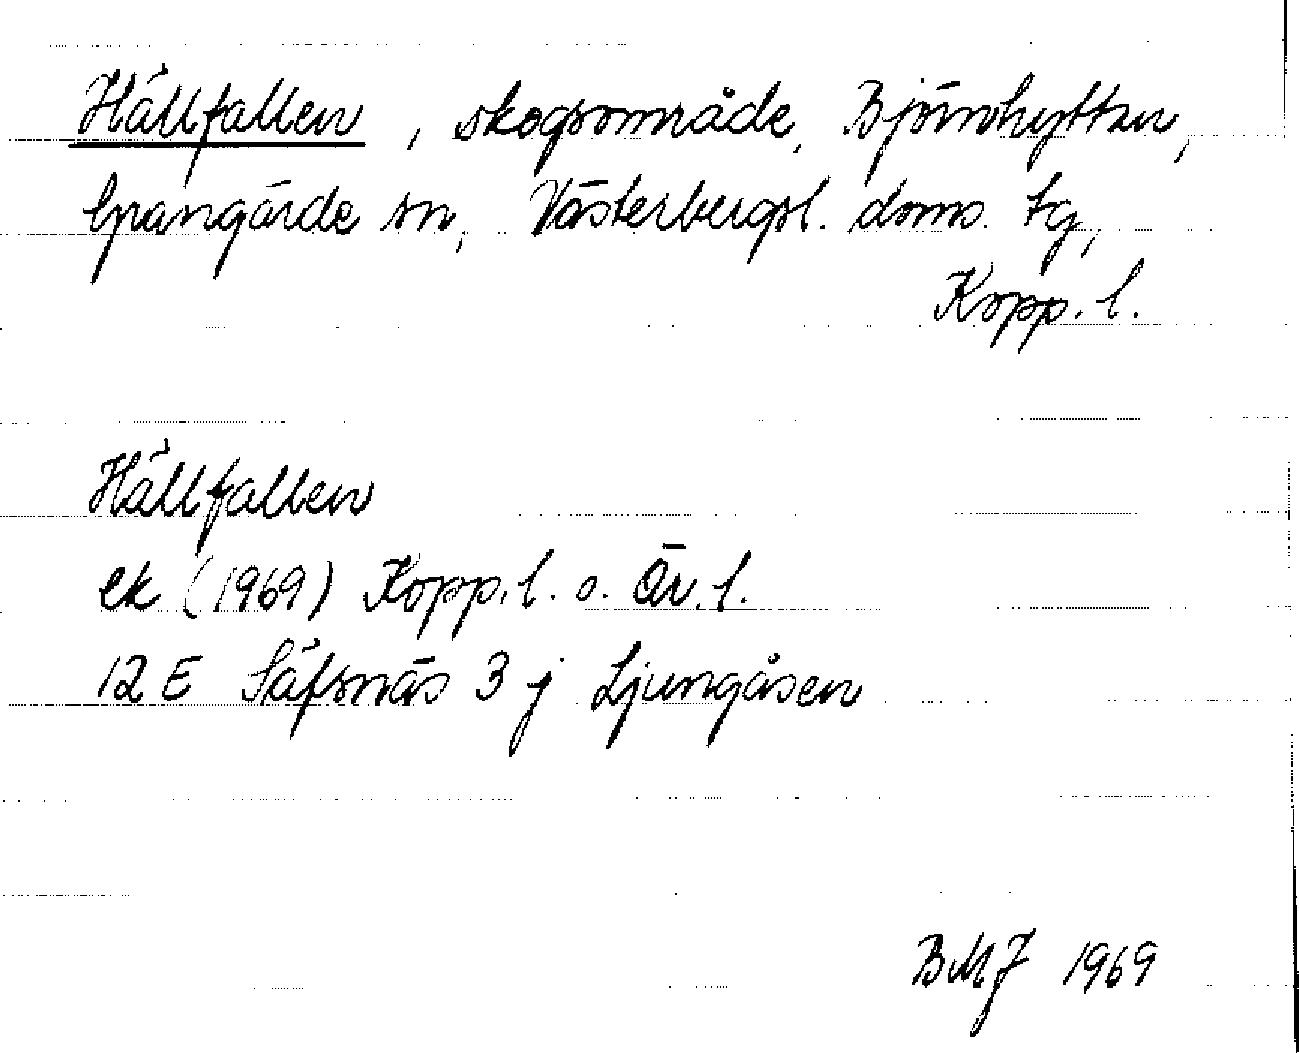 Hällfallen, skogsområde, Björnhyttan,
Grangärde sn, Västerbergsl. doms. tg,
Kopp. l.
Hällfallen
ek (1969) Kopp. l. o. Äv. l.
12 E Säfsnäs 3 j Ljungåsen
BMJ 1969